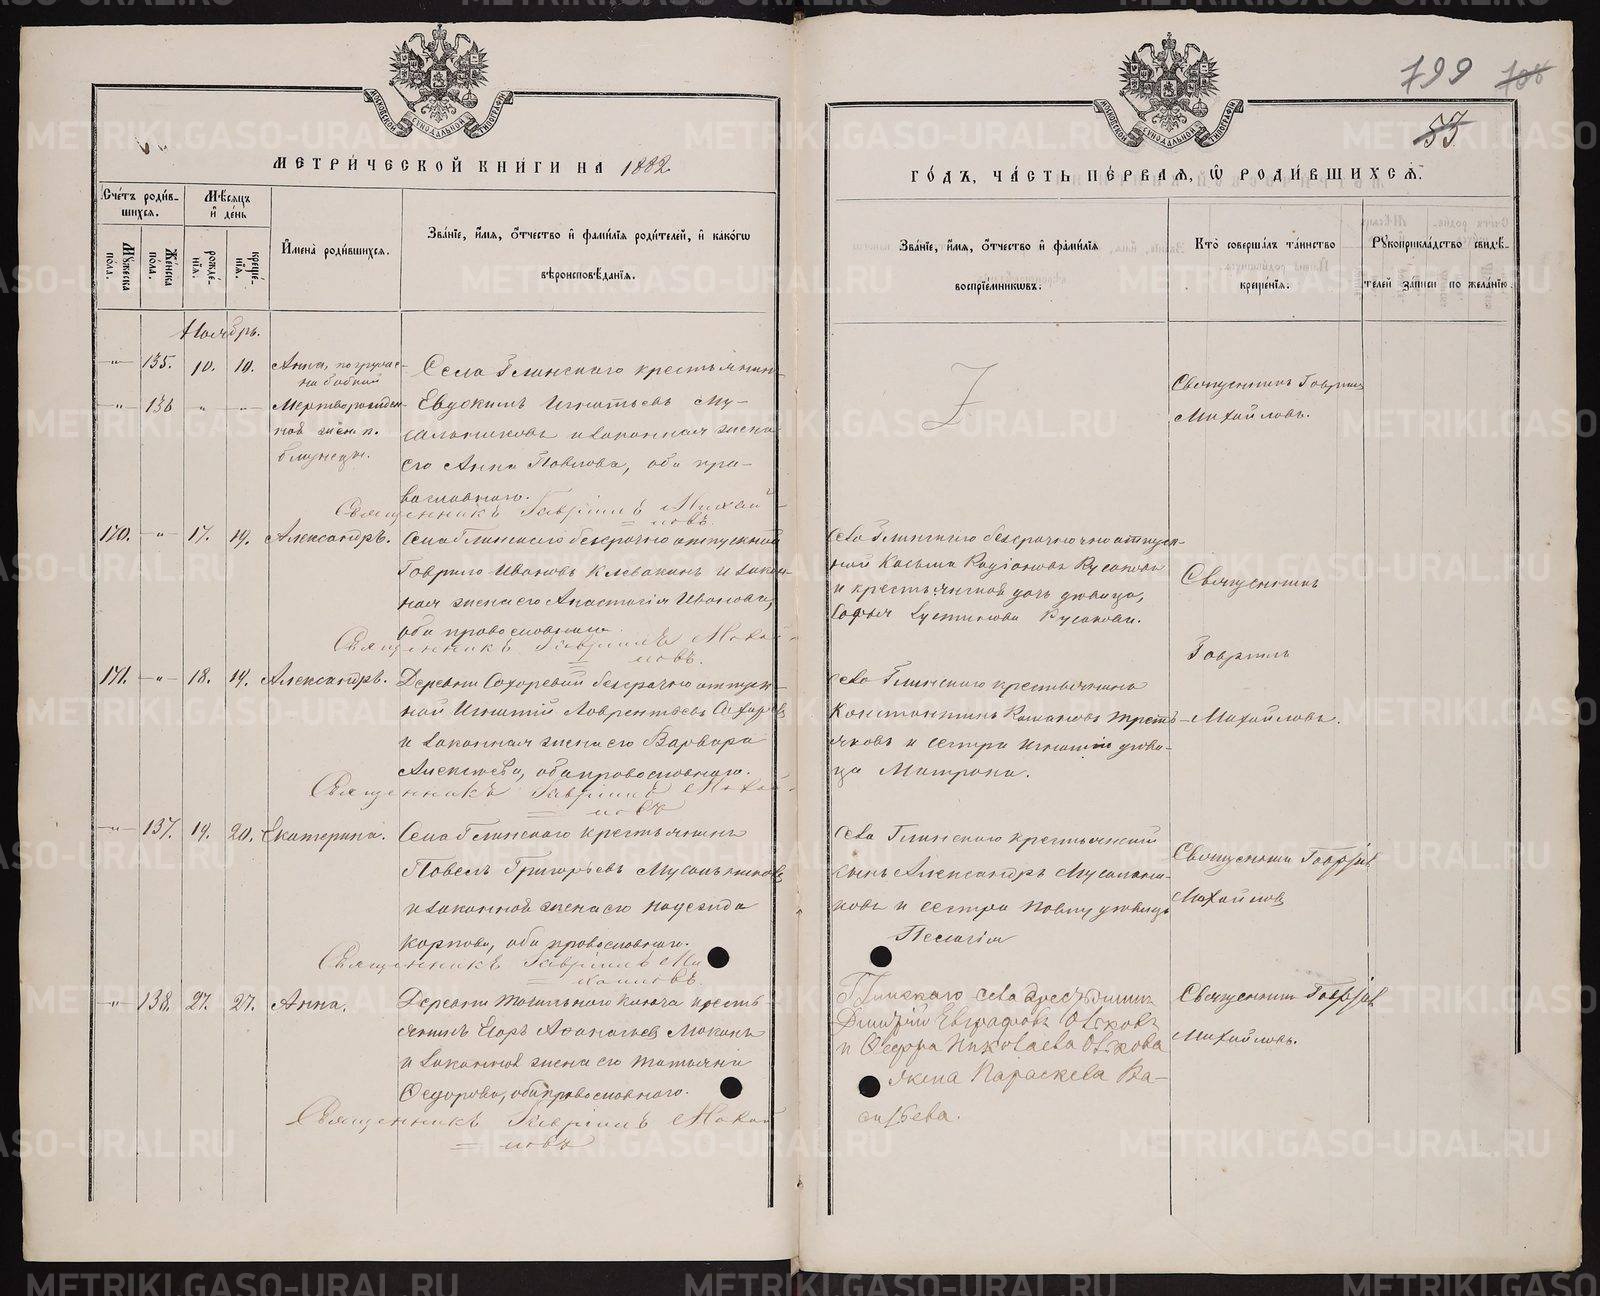 799 708
53
МОСКОВСКОЙ СѴНОДАЛЬНОЙ ТИПОГРАФІИ
МОСКОВСКОЙ СѴНОДАЛЬНОЙ ТИПОГРАФІИ
МЕТРИ́ЧЕСКОЙ КНИ́ГИ НА 1882
ГО́ДЪ, ЧА́СТЬ ПЕ́РВАЯ, Ѡ РОДИ́ВШИХСЯ.
Сче́тъ роди́вшихся.
Мѣ́сяцъ и де́нь
Му́жеска по́ла.
Же́нска по́ла.
рожде́нїя.
креще́нїя.
Имена̀ роди́вшихся.
Зва́нїе, и́мя, о́тчество и фами́лїя роди́телей, и како́гѡ
вѣроисповѣ́данїя.
Зва́нїе, и́мя, о́тчество и фами́лїя
воспрїе́мникѡвъ.
Кто̀ соверша́лъ та́инство
креще́нїя.
Рукоприкла́дство свидѣ́-
телей за́писи по жела́нїю.
Ноябрь.
-"- 135. 10. 10. Анна, погружена бабкой
-"- 136 " -"- Мертворожденной жен. п. близнецы.
Села Глинскаго крестьянин
Евдокимъ Игнатьевъ Му-
сальниковъ и законная жена
его Анна Павлова, оба пра-
вославнаго.
Священникъ Гавріилъ Михай-
ловъ.
Священникъ Гавріил
Михайловъ.
170. -"- 17. 19. Александръ.
Села Глинскаго безсрочно отпускной
Гаврило Ивановъ Клевакинъ и закон-
ная жена его Анастасія Иванова,
оба православнаго.
Священникъ Гавріилъ Михай-
ловъ.
Села Глинскаго безсрочно отпуск-
ной Косьма Родіоновъ Русаковъ
и крестьянская дочь девица,
Софья Устинова Русакова.
Священник
Гавріилъ
Михайловъ.
171. -"- 18. 19. Александръ.
Деревни Сохаревой безсрочно отпуск-
ной Игнатій Лаврентьевъ Сохарев
и законная жена его Варвара
Алексѣева, оба православнаго.
Священникъ Гавріилъ Михай-
ловъ
Села Глинскаго крестьянинъ
Константинъ Романовъ Треть-
яковъ и сестра Игнатію деви-
ца Матрона.
-"- 137. 19. 20. Екатерина.
Села Глинскаго крестьянинъ
Павелъ Григорьевъ Мусальников
и законная жена его Надежда
Карпова, оба православнаго.
Священникъ Гавріилъ Ми
хайловъ.
Села Глинскаго крестьянский
сынъ Александръ Мусальни-
ковъ и сестра Павлу девица
Пелагія
Священник Гавріил
Михайлов
-"- 138. 27. 27. Анна.
Деревни Ключа кресть
янинъ Егоръ Афанасьев
и законная жена его Татьяна
Федорова, оба православнаго.
Священникъ Гавріилъ Михай
ловъ
Глинскаго села крестьянинъ
Дмитрій Евграфовъ
и Ѳедора Николаева
жена Параскева Ва-
сильева.
Священник Гавріил
Михайловъ.
METRIKI.GASO-URAL.RU